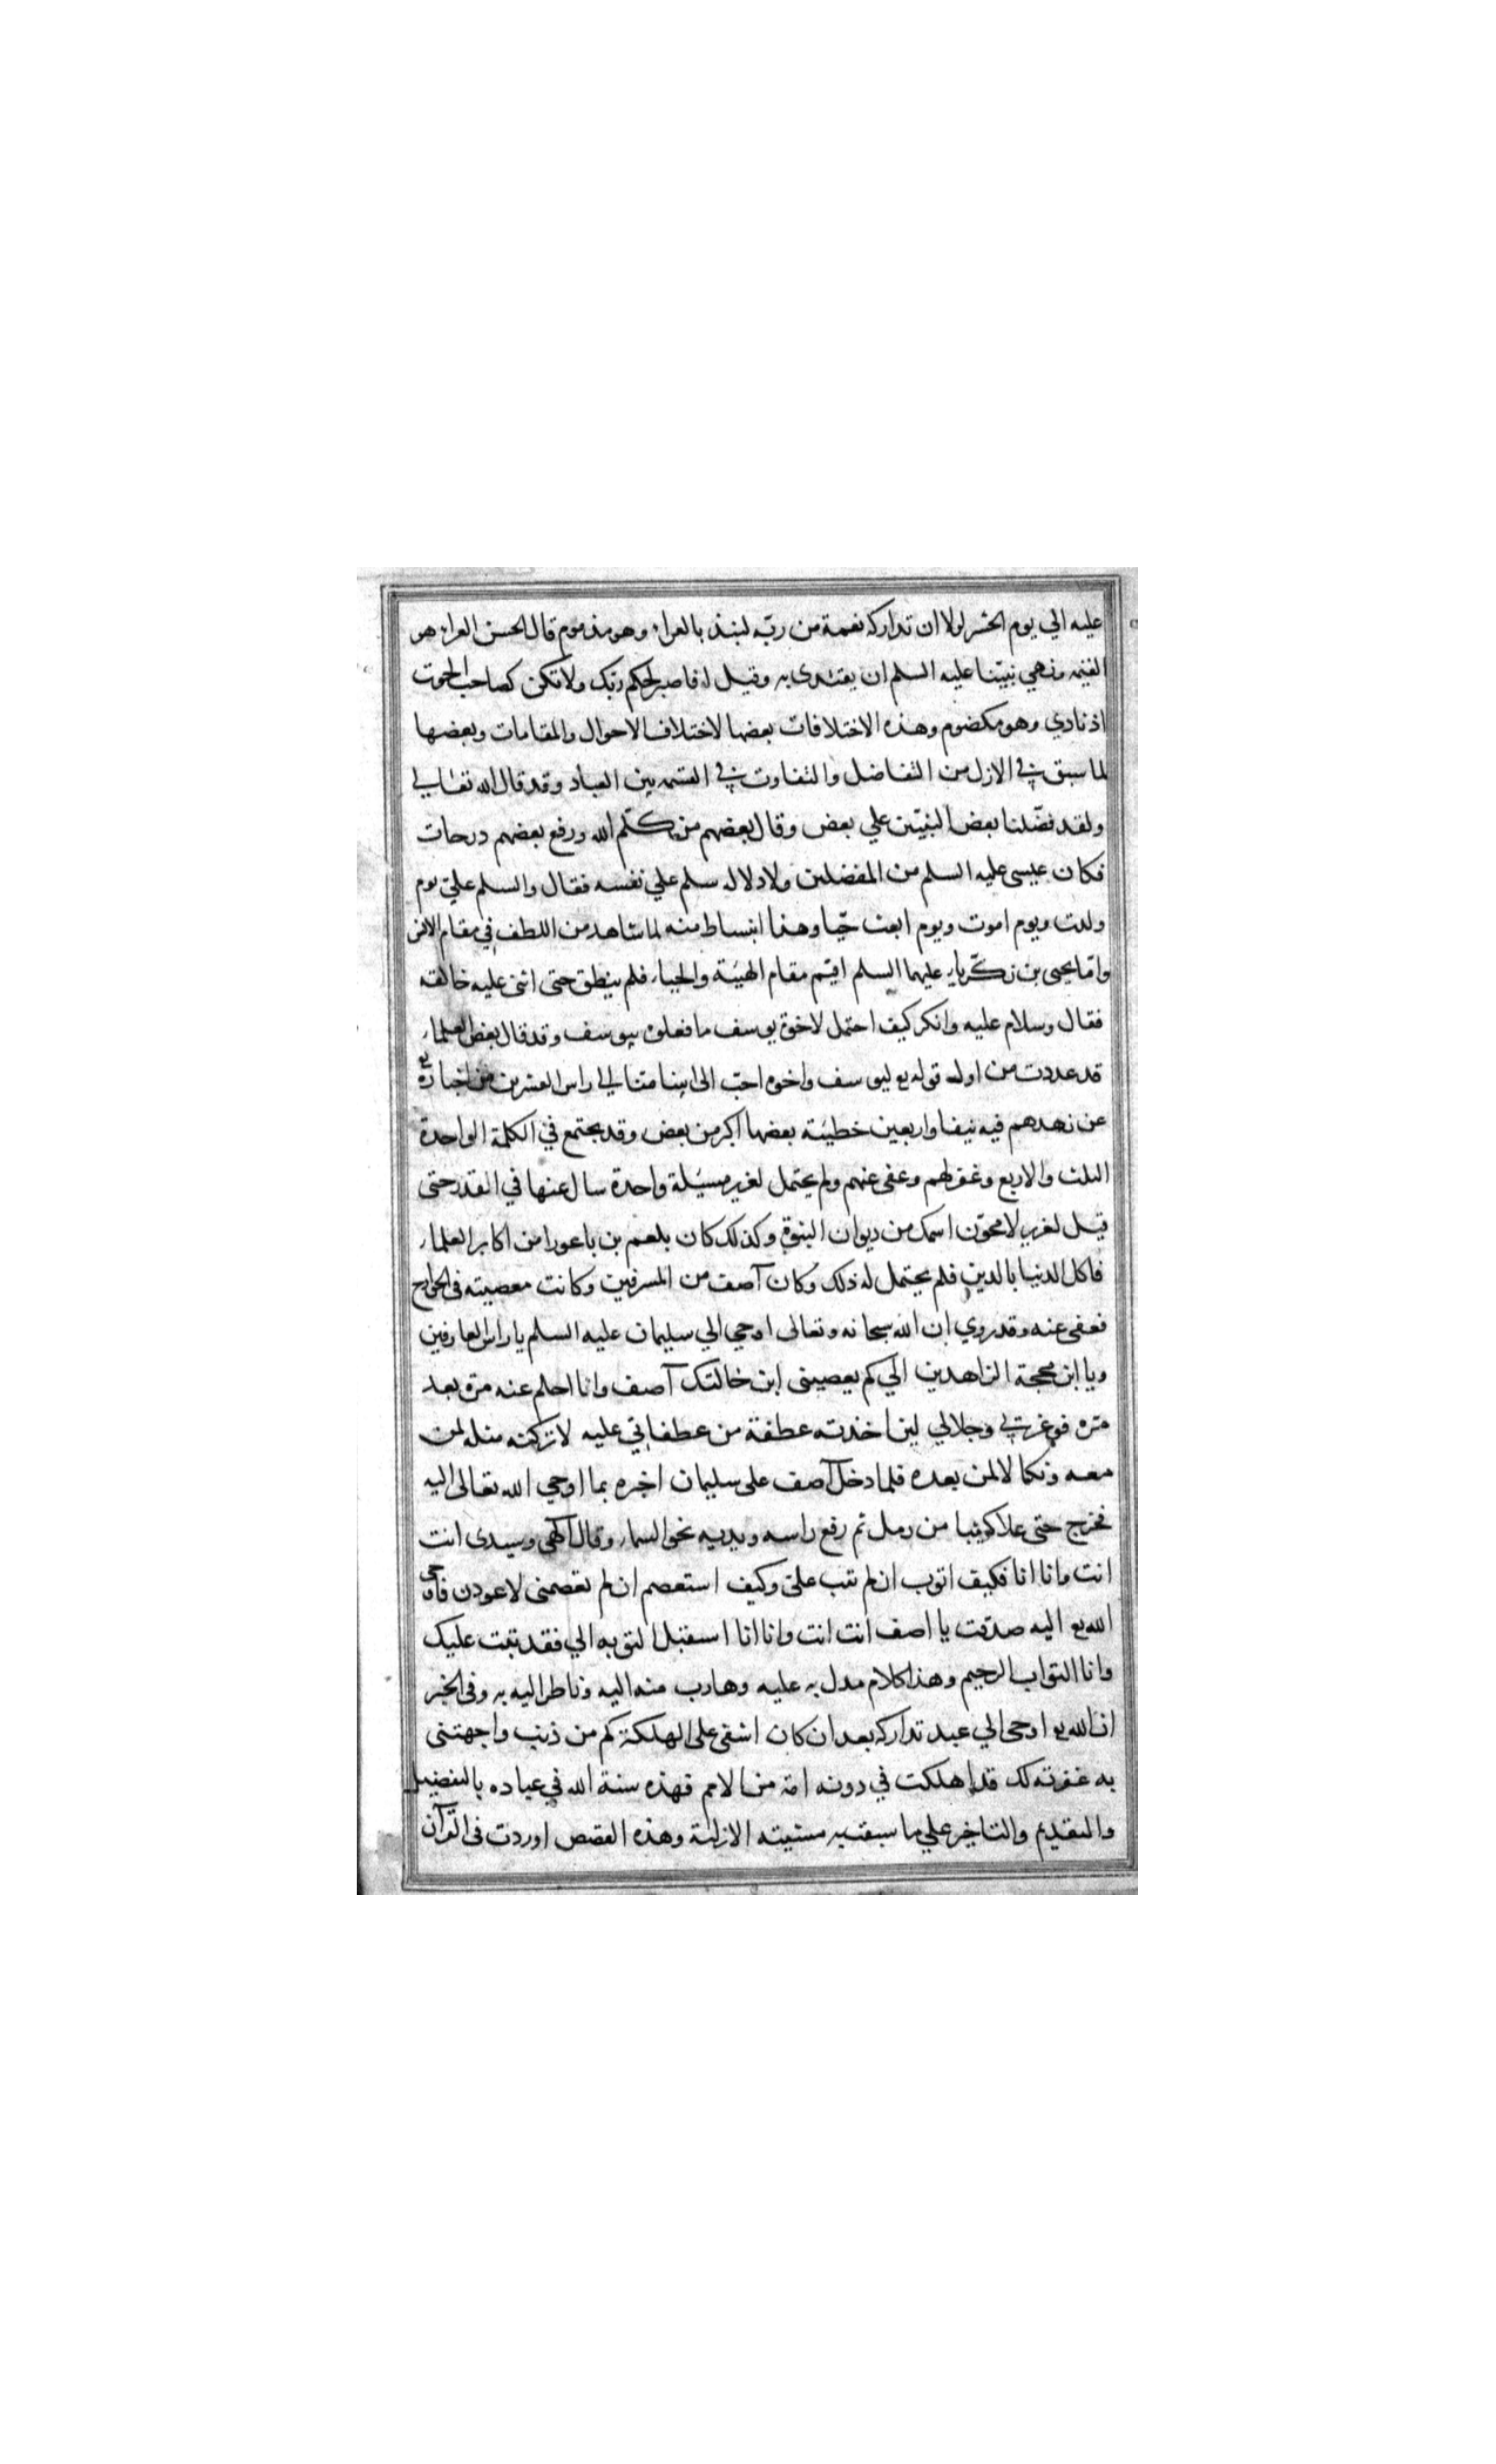 عليه الي يوم الحشر لولا ان تداركه نعمة من ربّه لنبذ بالعراء وهو مذموم قال الحسن العراء هو
القيمه ونهي نبيّنا عليه السلم ان يقتدى به وقيل له فاصبر لحكم ربّك ولا تكن كصاحب الحوت
اذ نادي وهو مكضوم وهذه الاختلافات بعضها لاختلاف الاحوال والمقامات وبعضها
لما سبق في الازل من التفاضل والتفاوت في القسمه بين العباد وقد قال الله تعالي
ولقد فضّلنا بعض النبيّين علي بعض وقال بعضهم من كلّم الله ورفع بعضهم درجات
فكان عيسى عليه السلم من المفضلين ولادلاله سلم علي نفسه فقال والسلم عليّ يوم
ولدت ويوم اموت ويوم ابعث حيّا وهذا انبساط منه لما شاهد من اللطف في مقام الانس
وامّا يحيى بن زكّرياء عليهما السلم اقيم مقام الهيبة والحياء فلم ينطق حتى اثنى عليه خالقه
فقال وسلام عليه وانكر كيف احتمل لاخوة يوسف ما فعلوه بيوسف وقد قال بعض العلماء
قد عددت من اوله قوله تع ليوسف واخوه احبّ الى ابينا منّا الي راس العشرين من اخباره تع
عن زهدهم فيه نيفا واربعين خطيئة بعضها اكبر من بعض وقد يجتمع في الكلمة الواحدة
الثلث والاربع وغفر لهم وعفى عنهم ولم يحتمل لعزير مسيلة واحدة سال عنها في القدر حتى
قيل لعزير لامحونّ اسمك من ديوان النبوة وكذلك كان بلعم بن باعورا من اكابر العلماء
فاكل الدنيا بالدين فلم يحتمل له ذلك وكان آصف من المسرفين وكانت معصيته في الجوارح
فعفى عنه وقد روي ان الله سبحانه وتعالى اوحي الي سليمان عليه السلم يا راس العارفين
ويا ابن محجة الزاهدين الي كم يعصينى ابن خالتك آصف وانا احلم عنه مرّة بعد
مرّة فوعزتي وجلالي لين اخذته عطفة من عطفاتي عليه لاتركنه مثله لمن
معه ونكالا لمن بعده فلما دخل آصف على سليمان اخبره بما اوحي الله تعالى اليه
فخرج حتى علا كثيبا من رمل ثم رفع راسه ويديه نحو السماء وقال الهى وسيدى انت
انت وانا انا فكيف اتوب ان لم تتب عليّ وكيف استعصم ان لم تعصمنى لاعودن فاوحى
الله تع اليه صدقت يا اصف انت انت وانا انا استقبل التوبه الي فقد تبت عليك
وانا التواب الرحيم وهذا كلام مدل به عليه وهارب منه اليه وناظر اليه به وفى الخبر
ان الله تع اوحى الي عبد تداركه بعد ان كان اشفى على الهلكة كم من ذنب واجهتنى
به غفرته لك قد اهلكت في دونه امة من الامم فهذه سنة الله في عباده بالتفضيل
والتقديم والتاخير علي ما سبقت به مشيته الازلية وهذه القصص اوردت فى القرآن